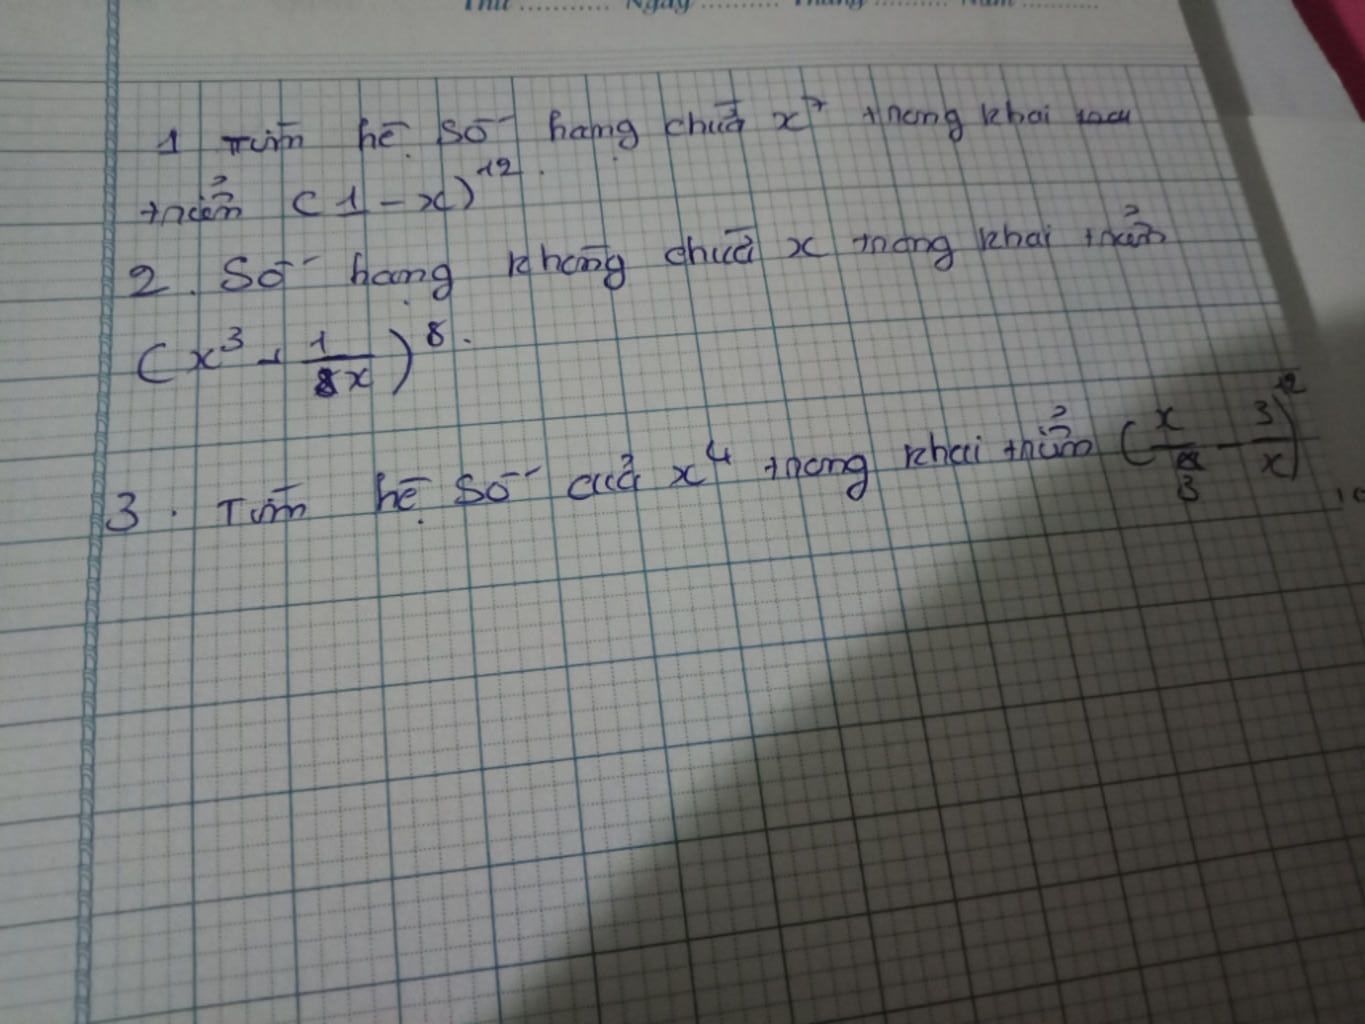 Thứ .......... Ngày .......... Tháng .......... Năm ..........
1 Tìm hệ số hạng chứa x⁷ trong khai
triển (1 - x)¹².
2. Số hạng không chứa x trong khai triển
(x³ + 1/8x)⁸.
3. Tìm hệ số của x⁴ trong khai triển (x/3 - 3/x)¹²